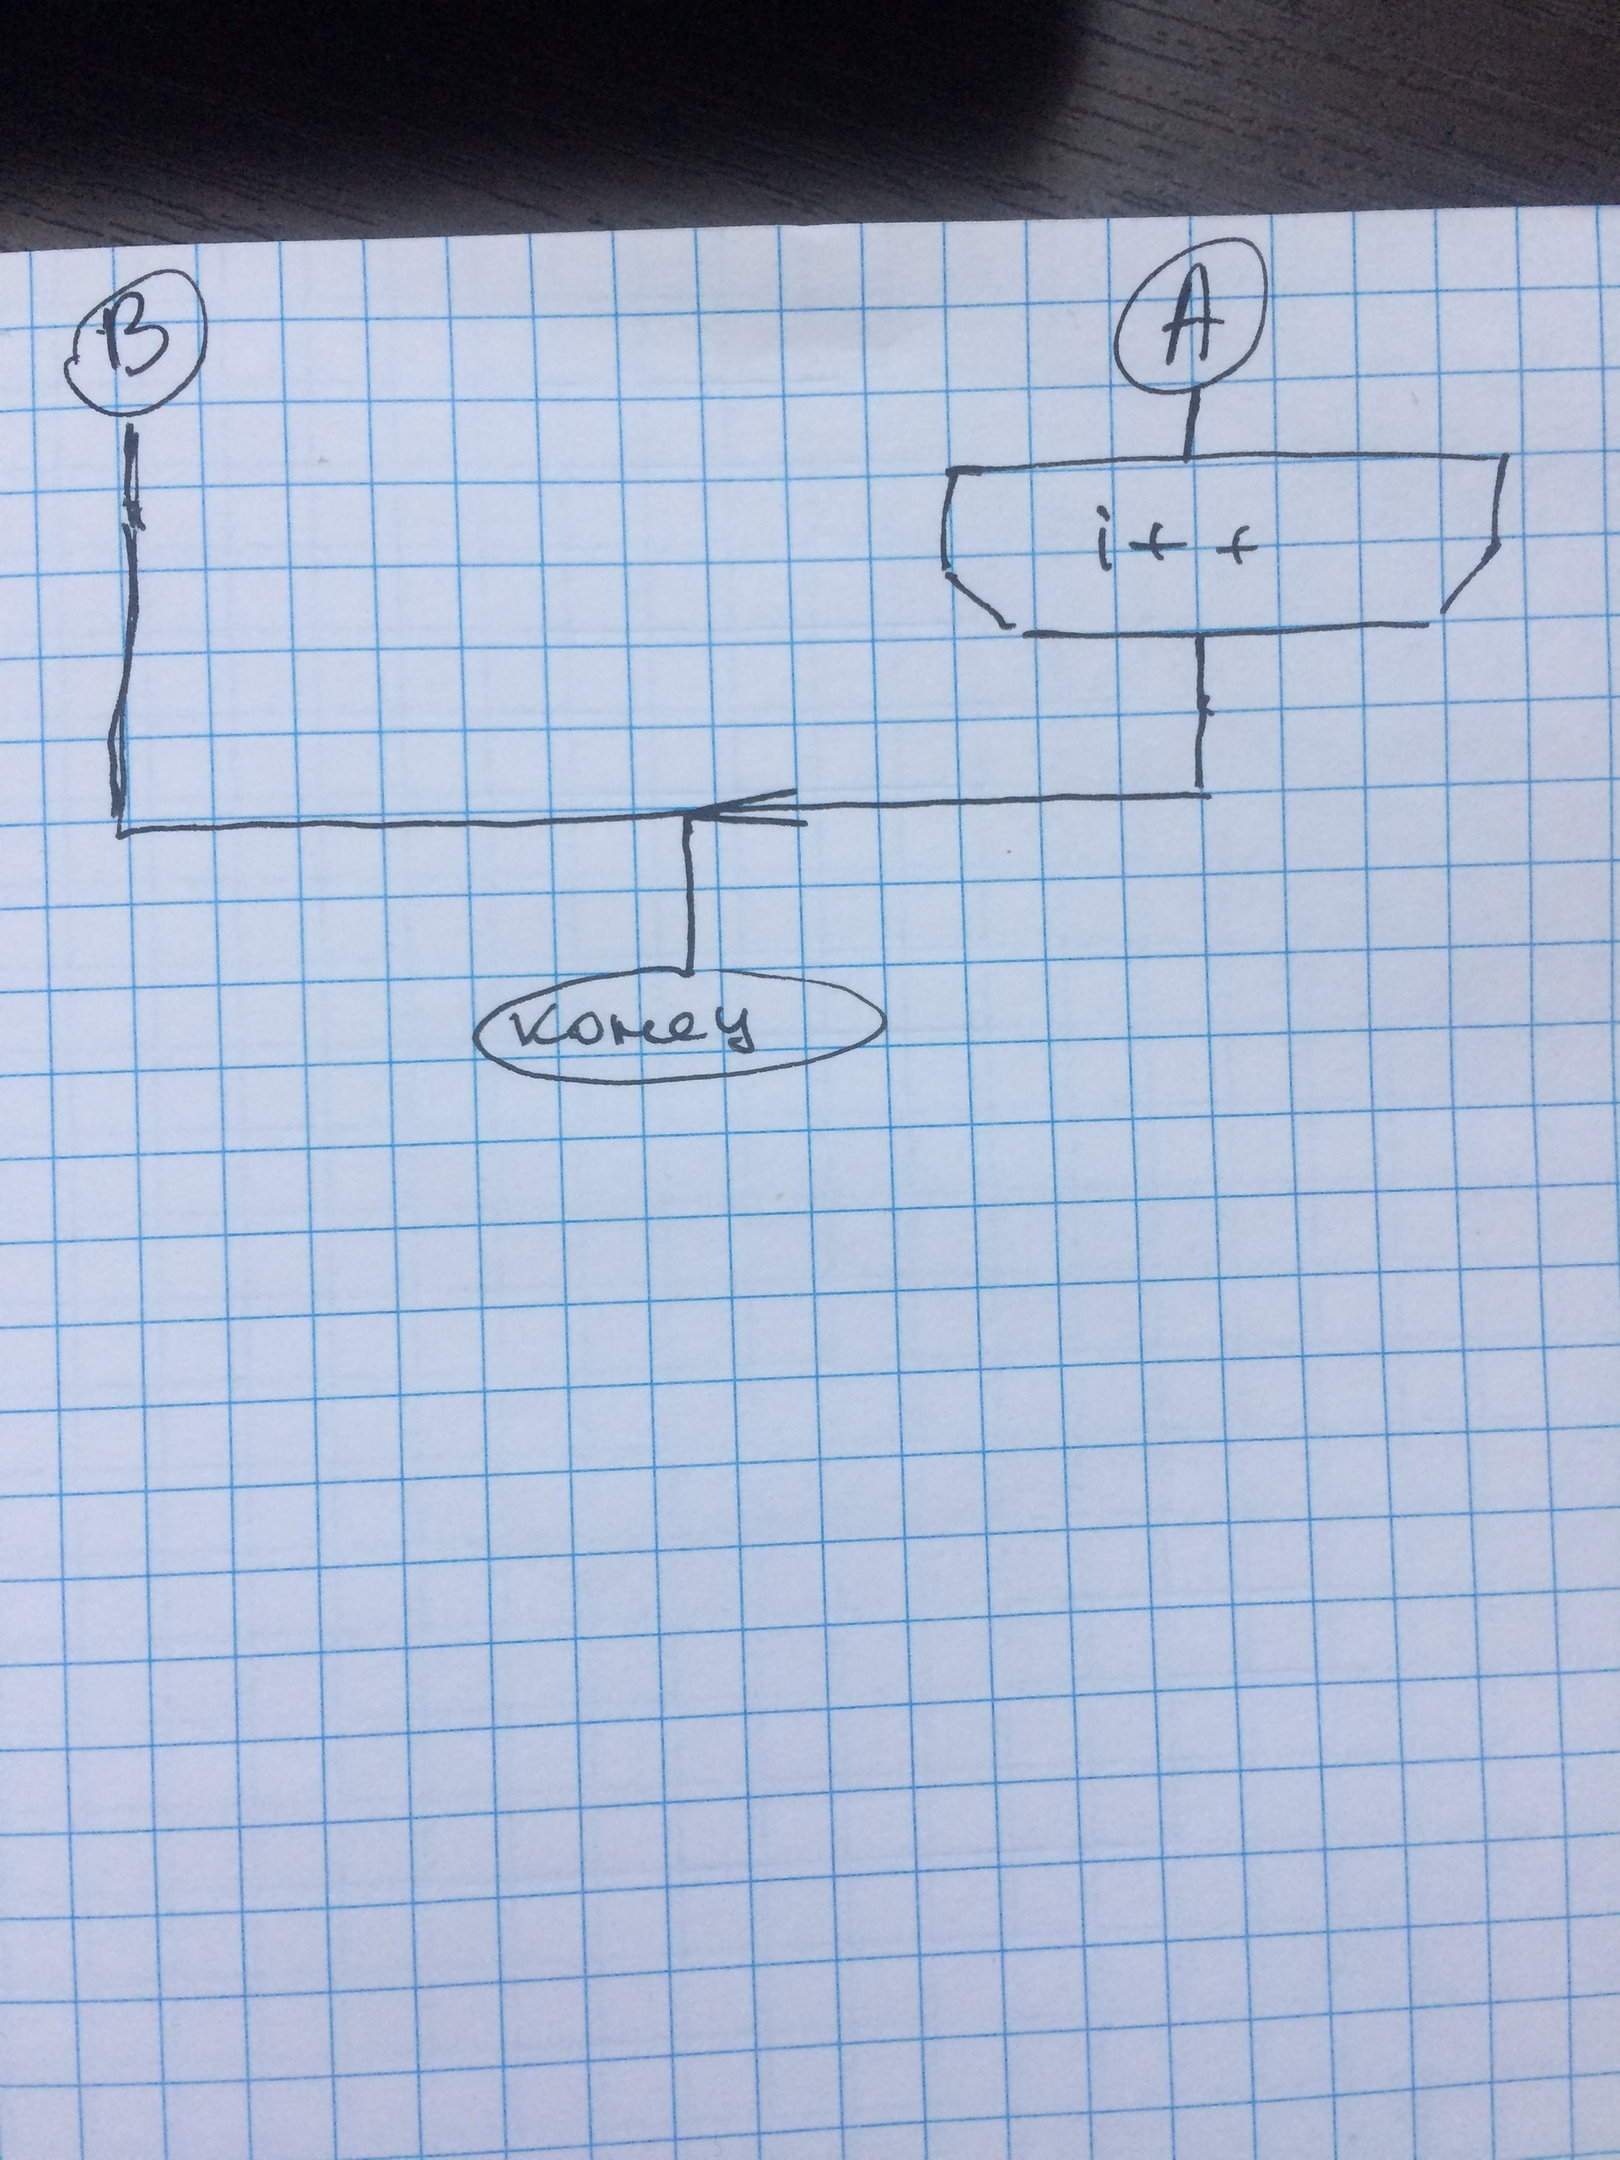 B
A
i++
конец